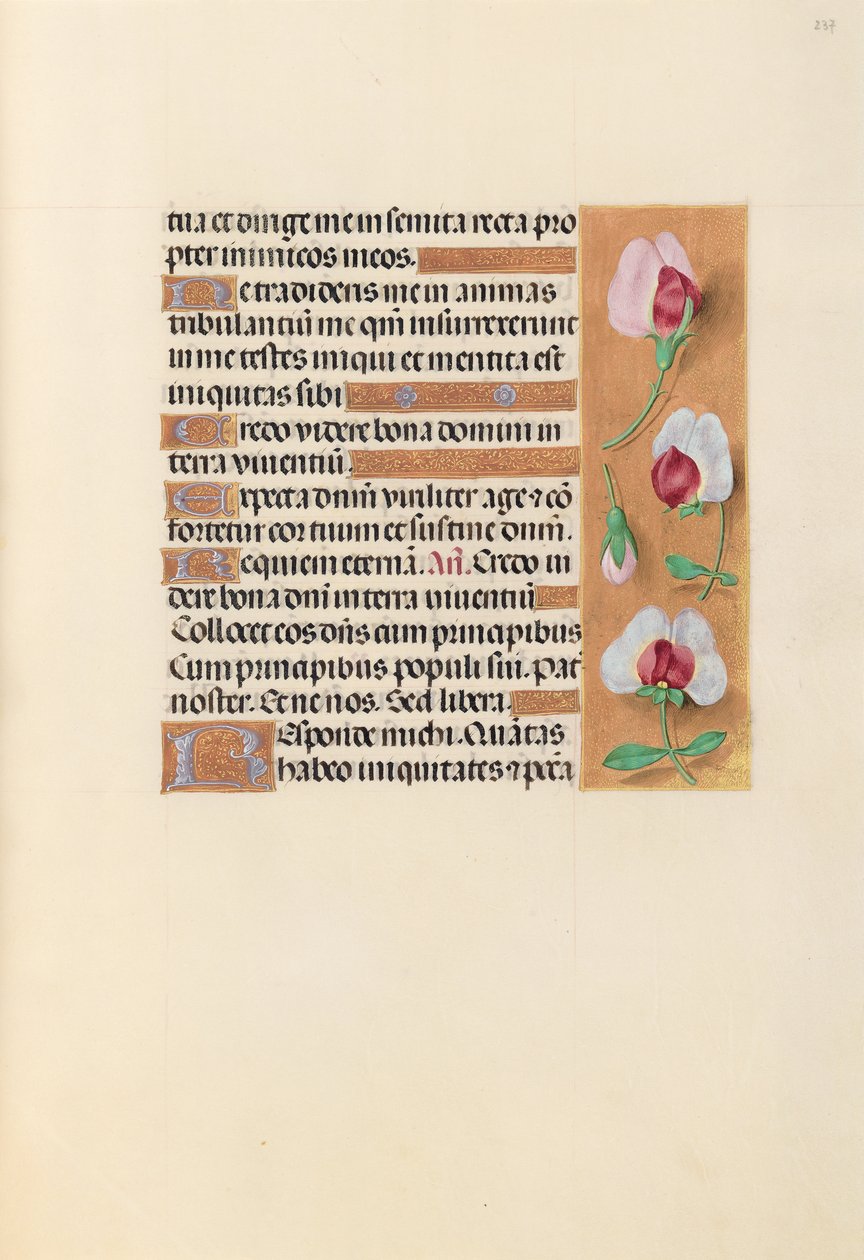 237
tua et dirige me in semita recta pro
pter inimicos meos.
Ne tradideris me in animas
tribulantiū me qm̄ insurrexerunt
in me testes iniqui et mentita est
iniquitas sibi
Credo videre bona domini in
terra viventiū.
Expecta dn̄m viriliter age ⁊ cō
fortetur cor tuum et sustine dn̄m.
Requiem eternā. An̄. Credo vi
dere bona dn̄i in terra viventiū
Collocet eos dn̄s cum principibus
Cum principibus populi sui. Pat̄
noster. Et ne nos. Sed libera.
Responde michi. Quātas
habeo iniquitates ⁊ pccā